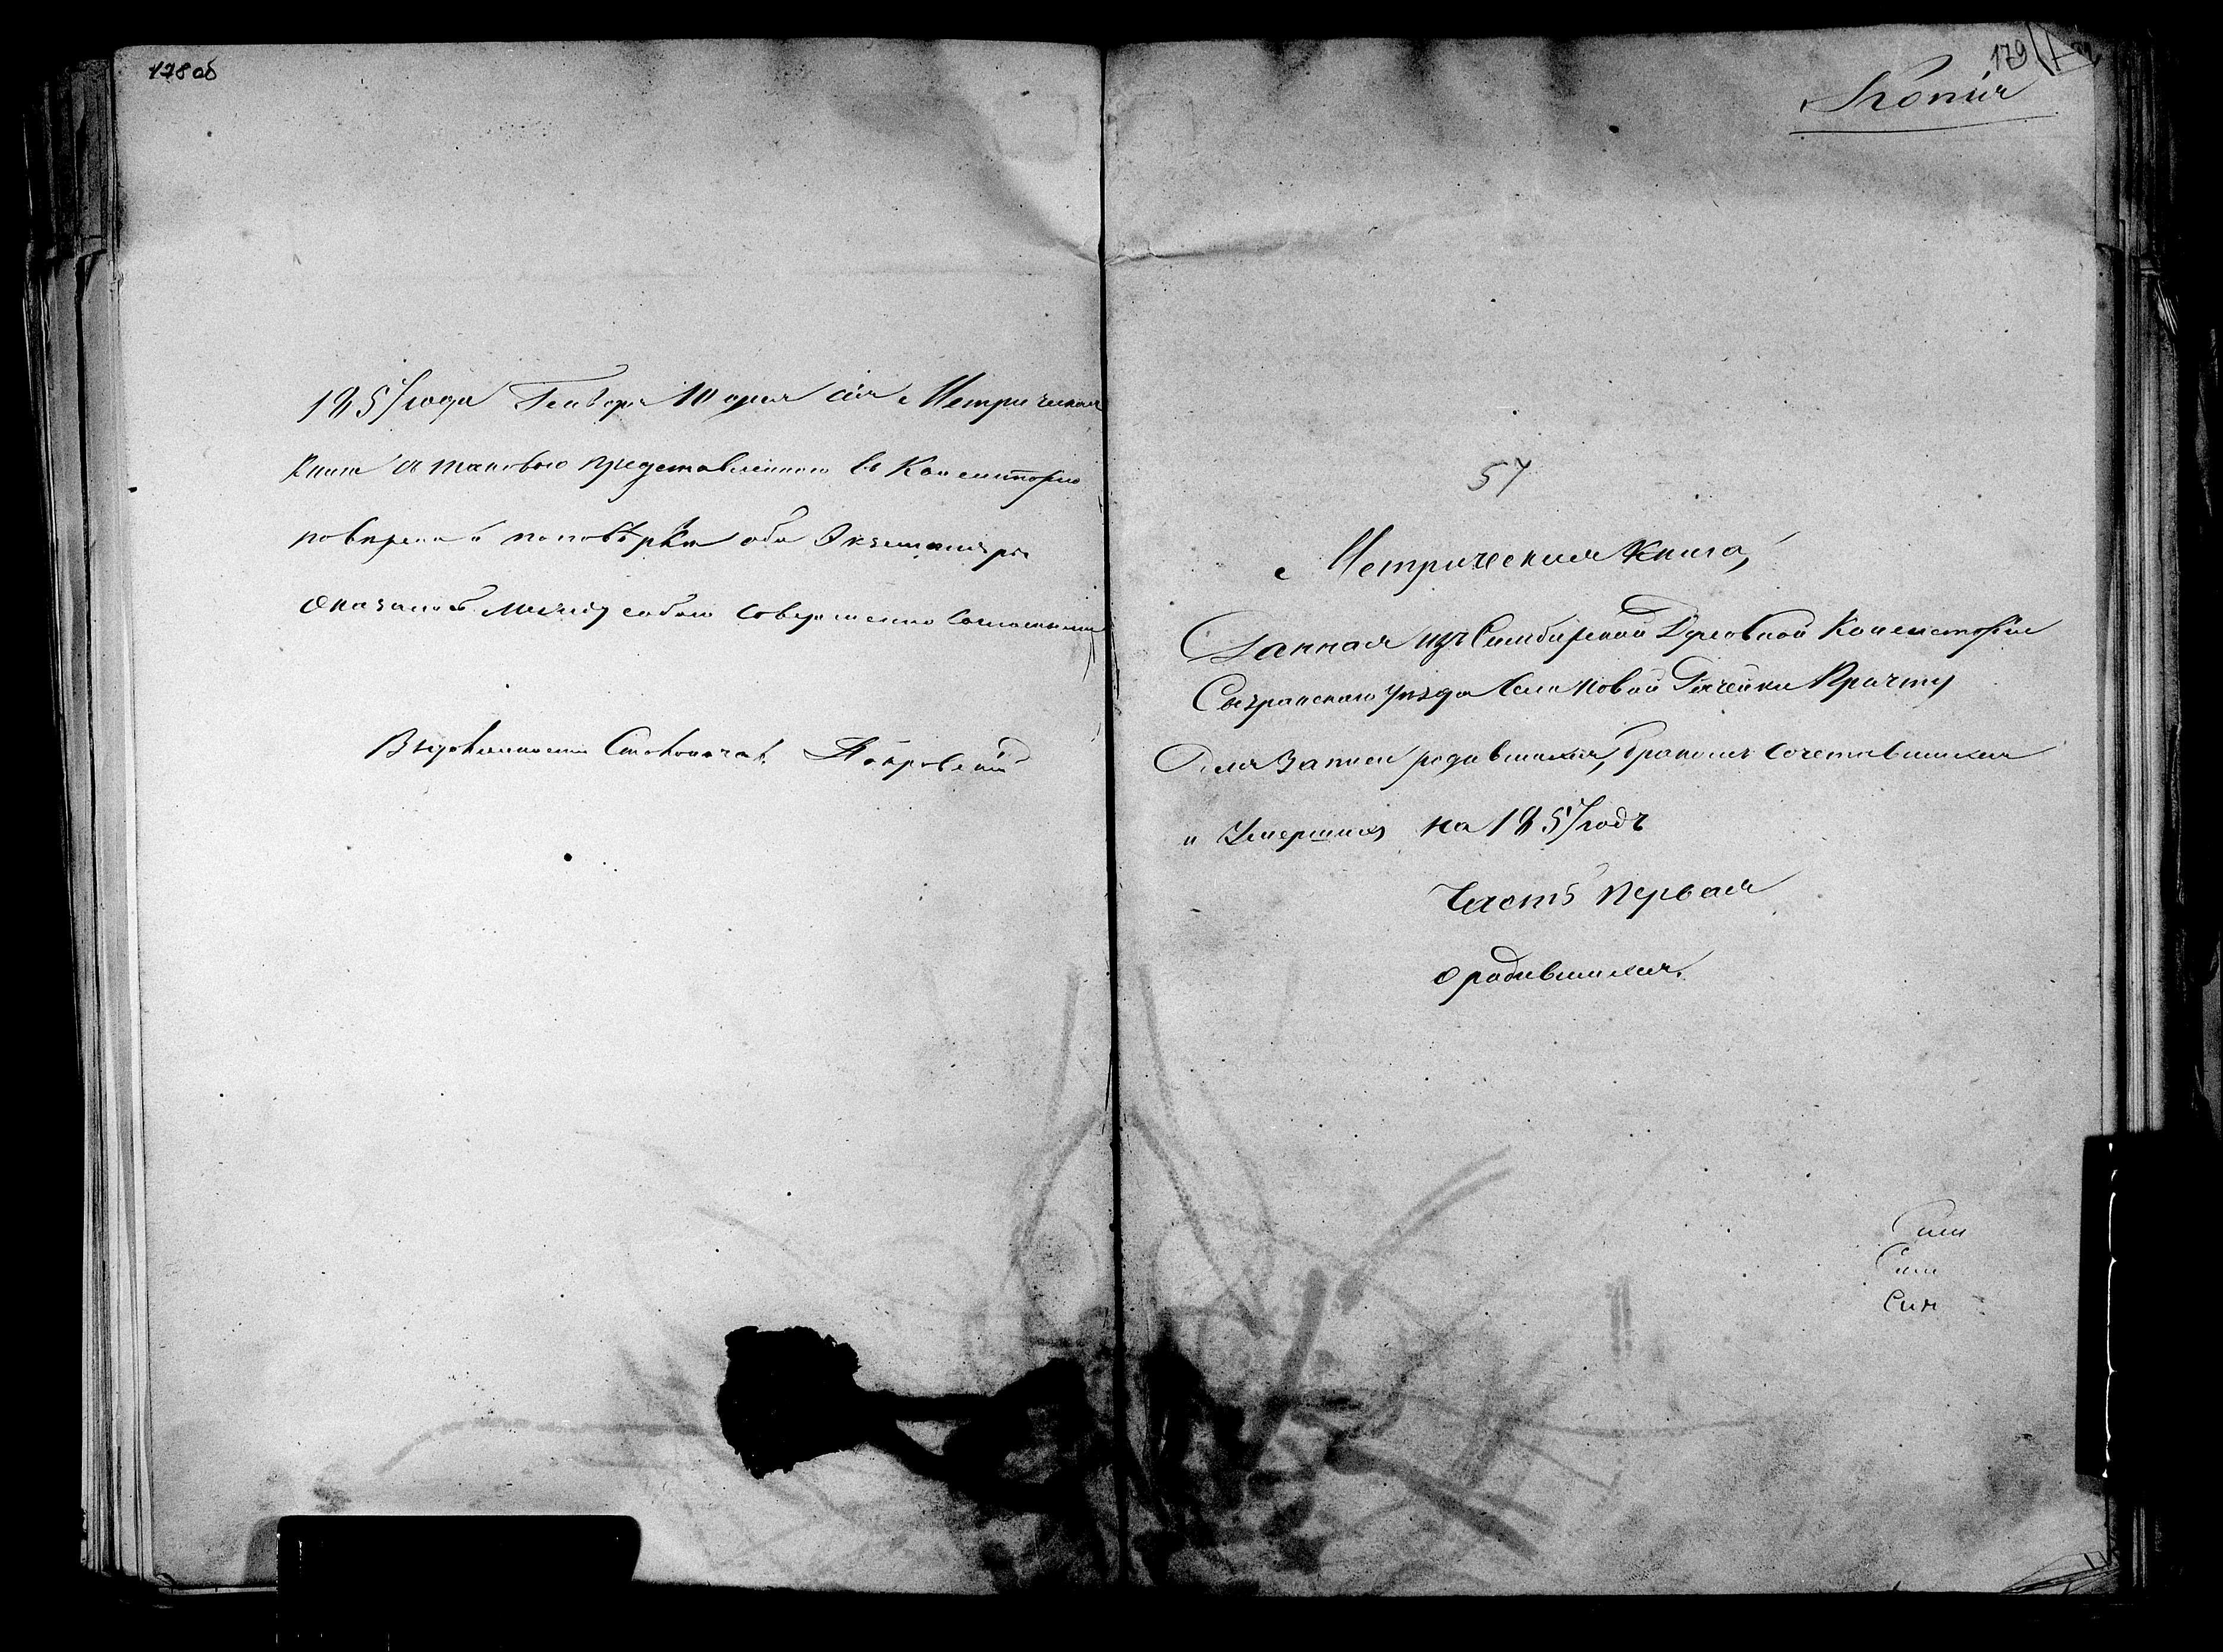 178 об
1857 года Генваря 10 дня сія Метрическая
книга съ таковою представленною въ Консисторію
поверена и по поверке оба Экземпляра
оказались между собою совершенно
Столоначал. Покровскій
179
Копія
57
Метрическая книга,
Данная изъ Симбирской Духовной Консисторіи
Сызранскаго уезда села Новой Рачейки Причту
Для записи родившихся, бракомъ сочетавшихся
и Умершихъ на 1857 годъ
Часть первая
о родившихся.
Сим
Сим
Сим